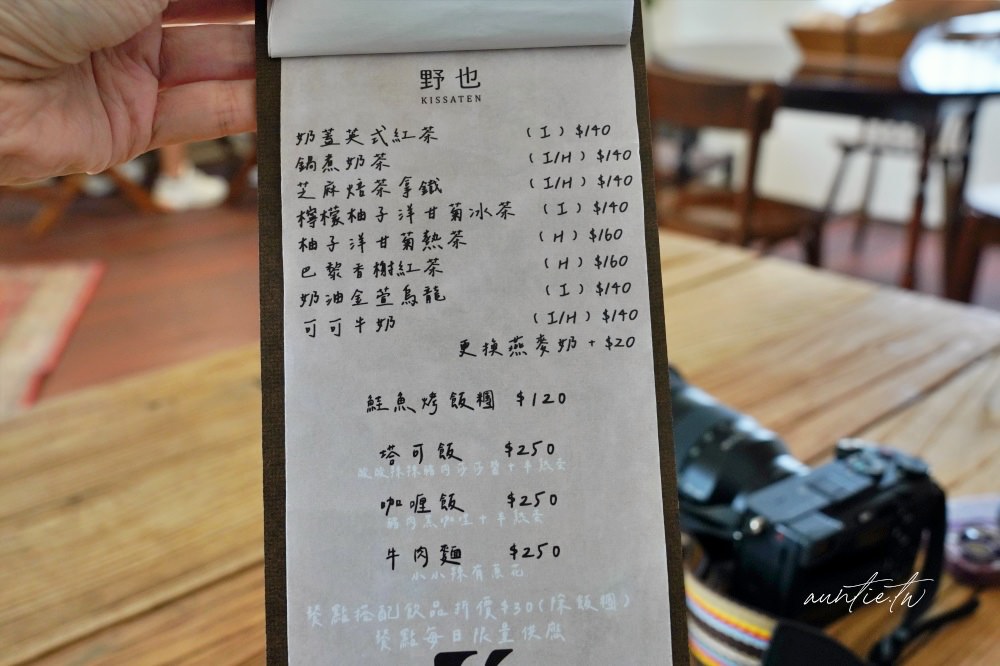 野也
KISSATEN
奶蓋英式紅茶 (I) $140
鍋煮奶茶 (I/H) $140
芝麻焙茶拿鐵 (I/H) $140
檸檬柚子洋甘菊冰茶 (I) $140
柚子洋甘菊熱茶 (H) $160
巴黎香榭紅茶 (H) $160
奶油金萱烏龍 (I) $140
可可牛奶 (I/H) $140
更換燕麥奶 + $20
鮭魚烤飯糰 $120
塔可飯 $250
酸酸辣辣豬肉子醬+半熟蛋
咖哩飯 $250
豬肉蔥咖哩+半熟蛋
牛肉麵 $250
小小辣有蔥花
餐點搭配飲品折價$30(除飯糰)
餐點每日限量供應
auntie.tw